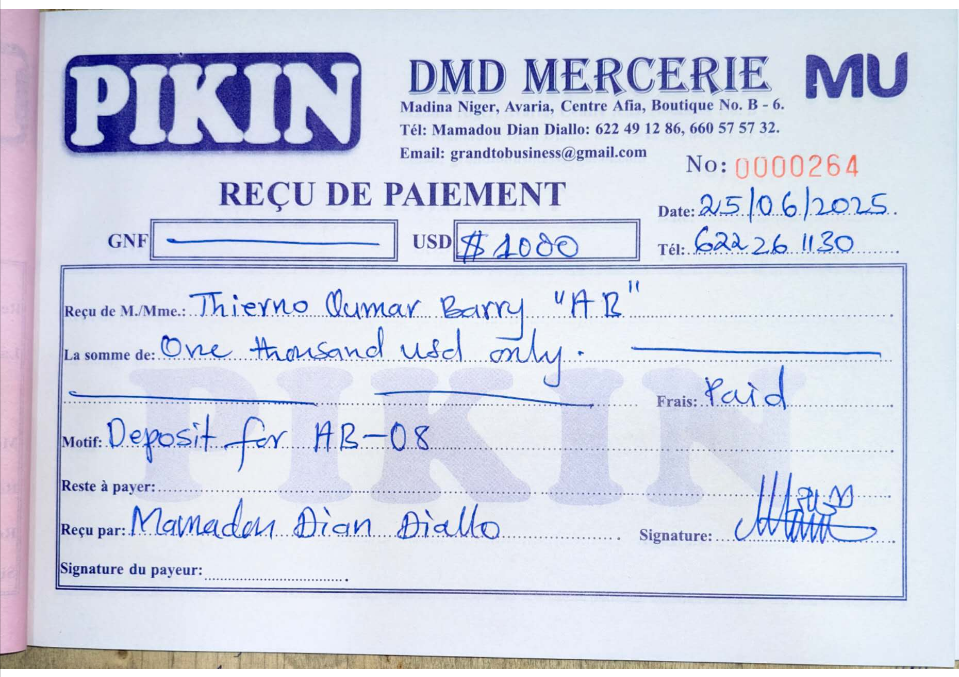 PIKIN
DMD MERCERIE
MU
Madina Niger, Avaria, Centre Afia, Boutique No. B - 6.
Tél: Mamadou Dian Diallo: 622 49 12 86, 660 57 57 32.
Email: grandtobusiness@gmail.com
No: 0000264
REÇU DE PAIEMENT
Date: 25/06/2025.
GNF
USD $ 1000
Tél: 622 26 1130
Reçu de M./Mme.: Thierno Oumar Barry "AB"
La somme de: One thousand usd only.
Frais: Paid
PIKIN
Motif: Deposit for AB-08
Reste à payer:
Reçu par: Mamadou Dian Diallo
Signature:
Signature du payeur: